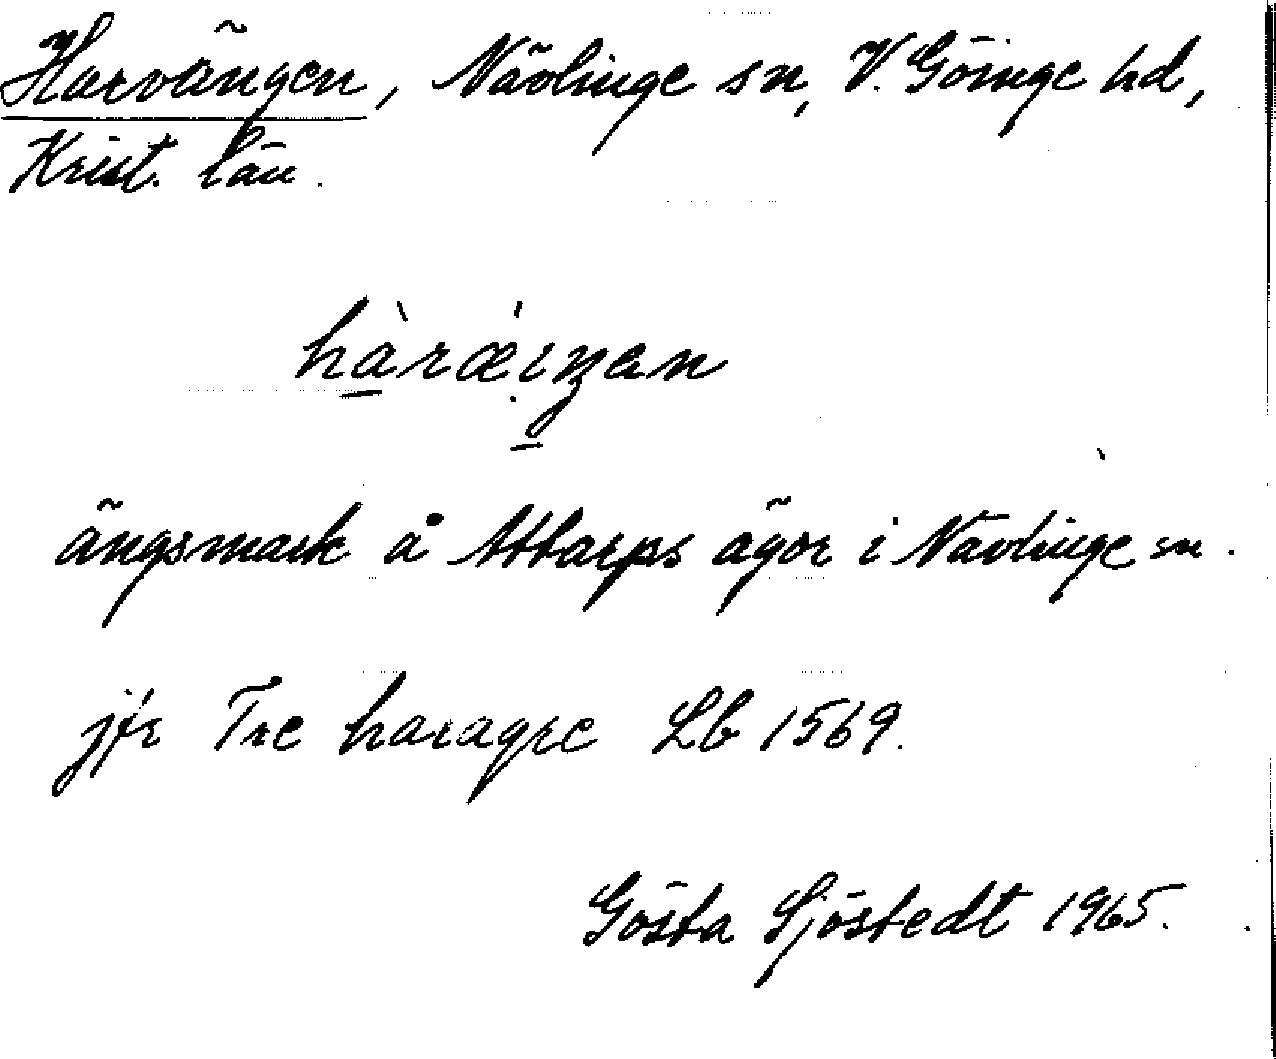 Harvängen, Nävlinge sn, V. Göinge hd,
Krist. län.
hàræ̀ıŋen
ängsmark å Attarps ägor i Nävlinge sn.
jfr Tre haragre Lb 1569.
Gösta Sjöstedt 1965.